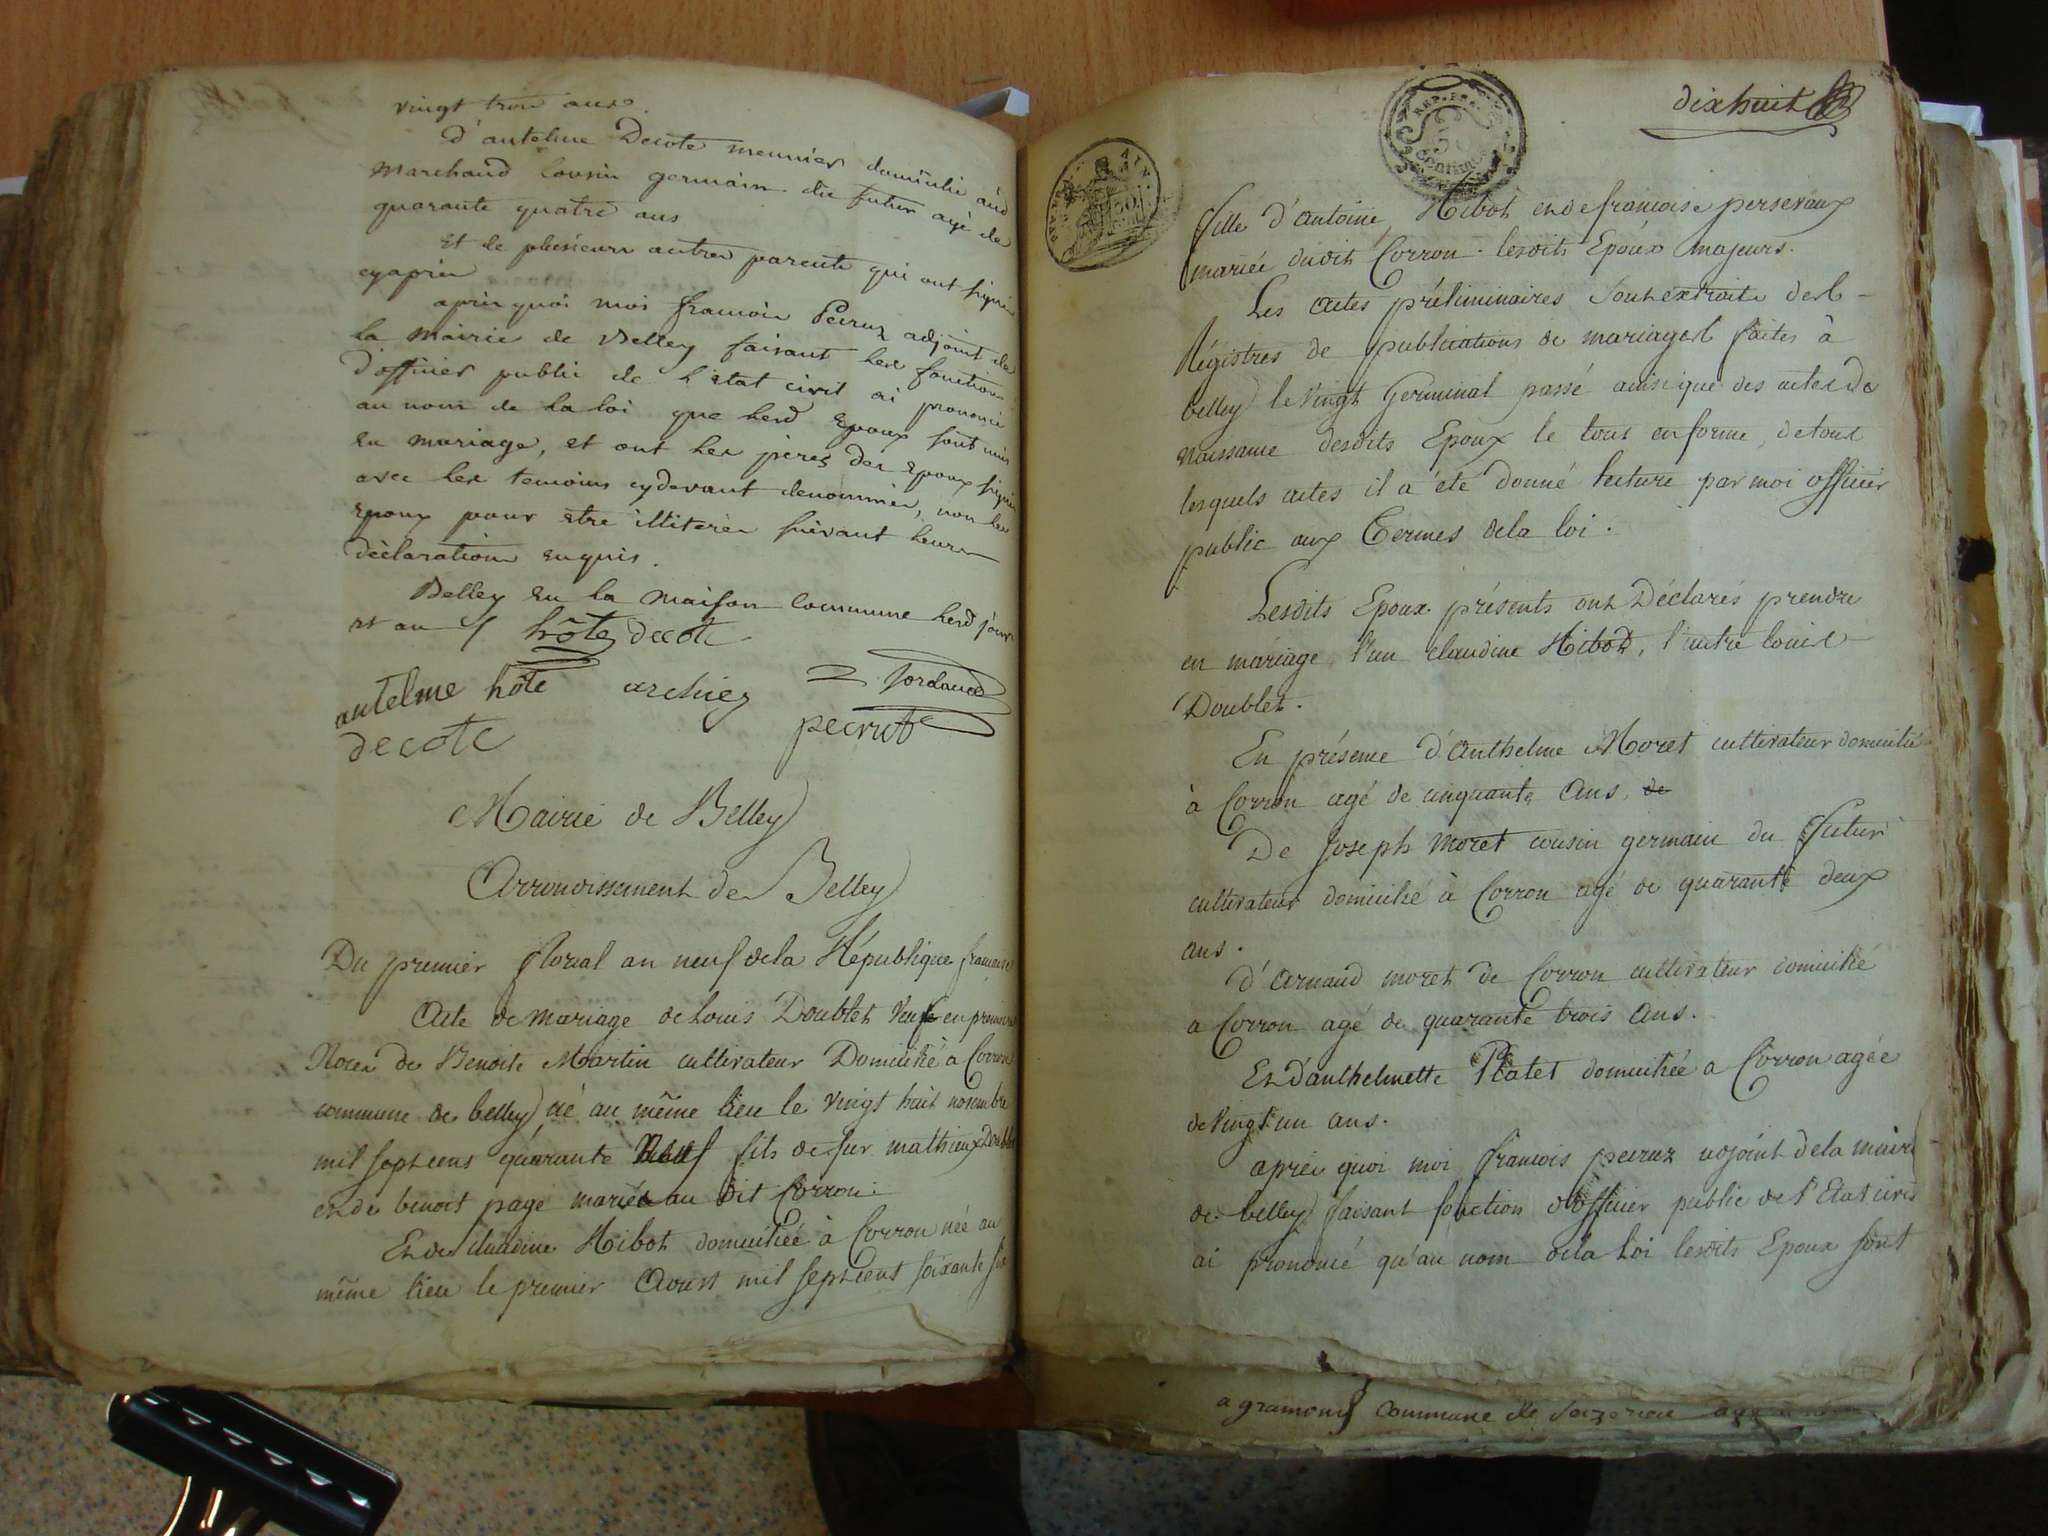 vingt trois ans.
d'antelme Decote meunier domicilié aud
Marchand Cousin germain du futur agé de
quarante quatre ans
et de plusieurs autres parents qui ont signé
cyaprès
après quoi moi françois Peiruz adjoint de
la Mairie de Belley faisant les fonctions
d'officier public de l'état civil ai prononcé
au nom de la loi que lesd epoux sont unis
en mariage, et ont les pères des epoux signés
avec les temoins cydevant denommés, non les
epoux pour etre illiterés suivant leurs
déclarations enquis.
Belley en la maison Commune lesd jour
et an / hôte decote
antelme hôte archiez Jordaud
decote peiruz
Mairie de Belley
Arrondissement de Belley
Du premier floréal an neuf de la République française
Acte de Mariage de Louis Doublet Veuf en premieres
Noces de Benoite Martin cultivateur Domicilié a Corron
commune de belley, né au même lieu le vingt huit novembre
mil sept cens quarante Neuf fils de fur mathieux Doublet
et de benoit page mariés au dit Corron.
Et de claudine Ribot domiciliée à Corron née au
même lieu le premier Aoust mil sept cens soixante six
dixhuit
REP. FRA.
50
centimes
AIN.
fille d'antoine Ribot et de françoise perseraux
mariés dudit Corron. lesdits Epoux majeurs.
Les actes préliminaires sont extraits des
Régistres de publications de mariages faites à
belley le vingt Germinal passé ainsi que des actes de
naissance desdits Epoux le tout en forme, de tous
lesquels actes il a été donné lecture par moi officier
public aux Termes de la loi.
Lesdits Epoux présents ont Déclarés prendre
en mariage, l'un claudine Ribot, l'autre louis
Doublet.
En présence d'Anthelme Moret cultivateur domicilié
à Corron agé de cinquante Ans, de
De Joseph Moret cousin germain du futur
cultivateur domicilié à Corron agé de quarante deux
ans.
d'Arnaud moret de Corron cultivateur domicilié
a Corron agé de quarante trois Ans.
Et d'anthelmette Platet domiciliée a Corron agée
de vingt un ans.
après quoi moi françois peiruz adjoint de la mairie
de belley faisant fonction d'officier public de l'Etat civil
ai prononcé qu'au nom de la Loi lesdits Epoux sont
a gramond Commune de